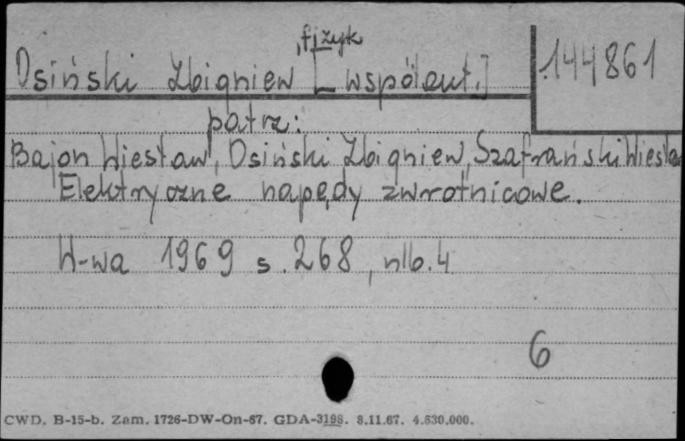 , fizyk
Osiński Zbigniew [współaut.]
144861
patrz:
Bajon Wiesław, Osiński Zbigniew, Szafrański Wiesła
Elektryczne napędy zwrotnicowe.
W-wa 1969 s. 268, nlb. 4
6
CWD. B-15-b. Zam. 1726-DW-On-67. GDA-3198. 8.11.67. 4.630.000.